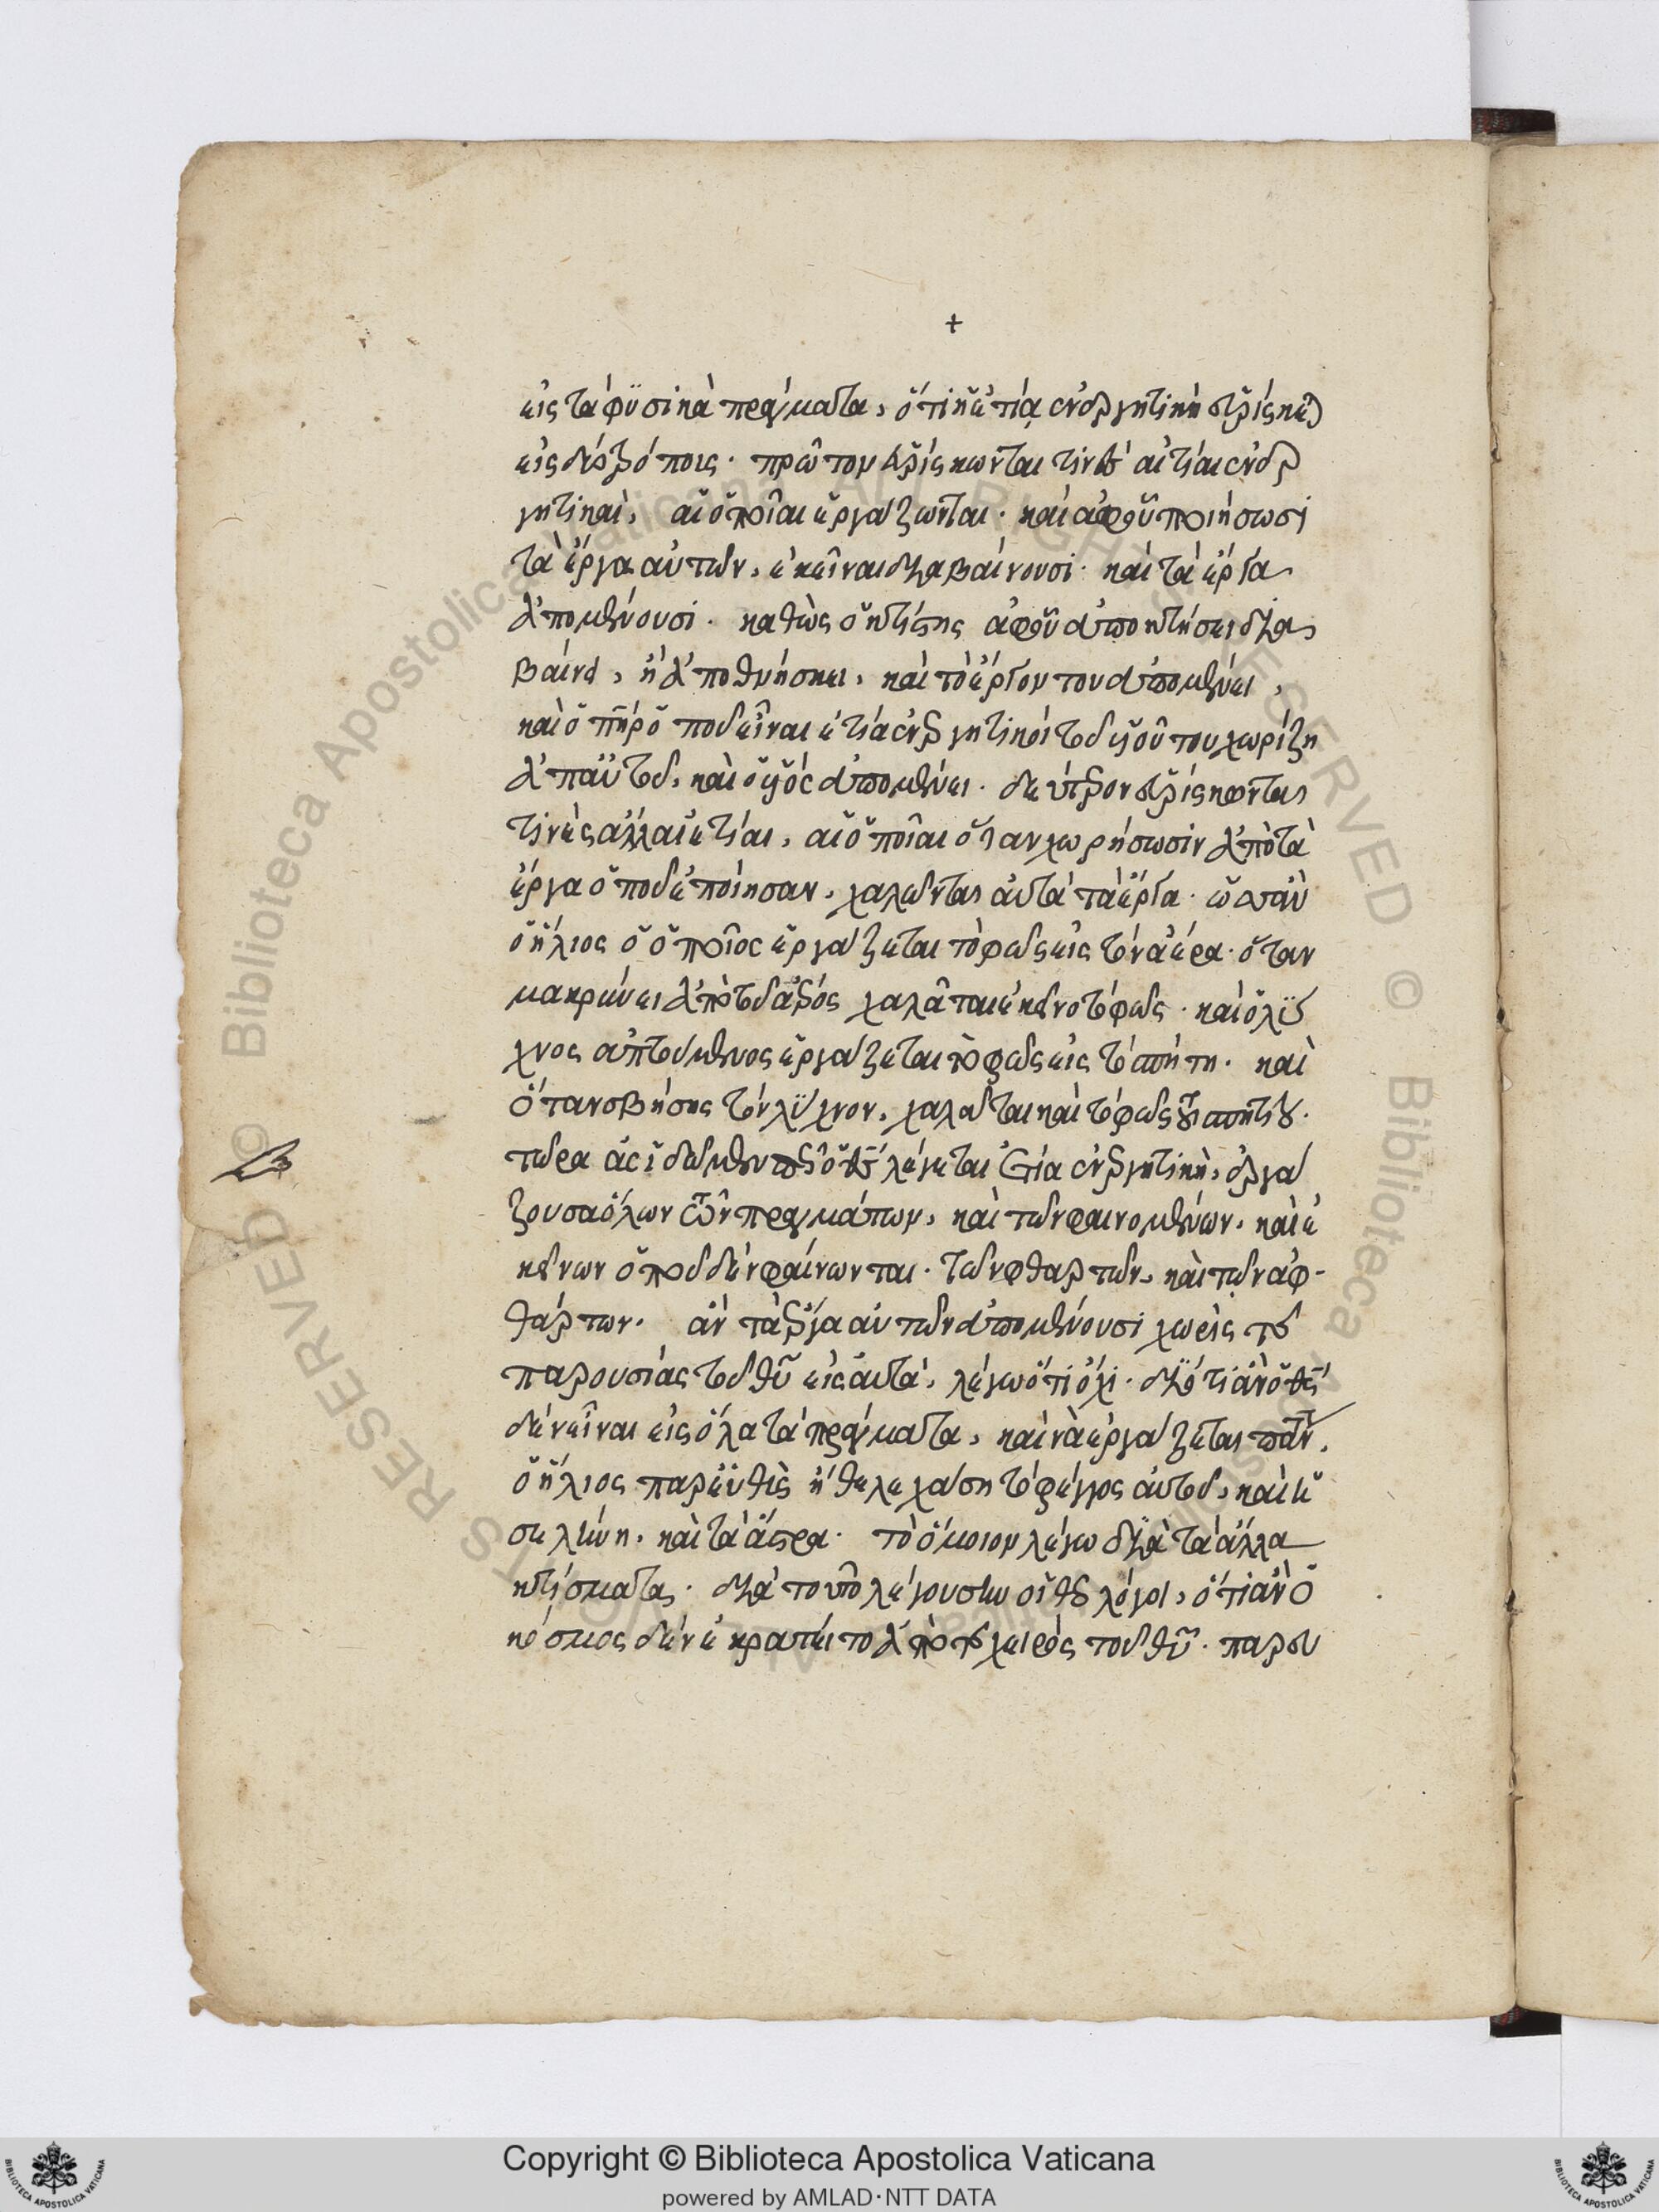 +
εἰς τὰ φυσικὰ πράγματα, ὅτι ἡ ἐτία ἐνεργητικὴ εὑρίσκε
εἰς δύο τρόποις. πρῶτον εὑρίσκωνται τινὲς αἰτίαι ἐνερ
γητικαὶ, αἱ ὁποῖαι ἐργάζωνται. καὶ ἀφοῦ ποιήσωσι
τὰ ἔργα αὐτῶν, ἐκεῖναι διαβαίνουσι. καὶ τὰ ἔργα
ἀπομένουσι. καθὼς ὁ κτίστης ἀφοῦ ἀποκτήσει δια
βαίνει, ἢ ἀποθνήσκει, καὶ τὸ ἔργον του ἀπομένει,
καὶ ὁ πηρ ὁποῦ εἶναι ἐτία ἐνεργητικὴ τοῦ υἱοῦ του χωρίζη
ἀπ' αὐτοῦ, καὶ ὁ υἱός ἀπομένει. δεύτερον εὑρίσκονται
τινὲς ἄλλαι ἐτίαι, αἱ ὁποῖαι ὅταν χωρήσωσιν ἀπὸ τὰ
ἔργα ὁποῦ ἐποίησαν, χαλῶνται αὐτὰ τὰ ἔργα. ὡσὰν
ὁ ἥλιος ὁ ὁποῖος ἐργάζεται τὸ φῶς εἰς τὸν ἀέρα. ὅταν
μακρύνει ἀπὸ τοῦ ἀέρος χαλᾶται ἐκεῖνο τὸ φῶς. καὶ ὁ λύ
χνος ἁπτόμενος ἐργάζεται τὸ φῶς εἰς τὸ σπήτη. καὶ
ὅταν σβήσης τὸν λύχνον, χαλᾶται καὶ τὸ φῶς τοῦ σπητίου.
τώρα ἂς ἰδοῦμεν πῶς ὁ θς λέγεται ἐτία ἐνεργητικὴ, ἐργά
ζουσα ὅλων τῶν πραγμάτων, καὶ τῶν φαινομένων, καὶ ἐ
κείνων ὁποῦ δὲν φαίνωνται. τῶν φθαρτῶν, καὶ τῶν ἀφ-
θάρτων. ἂν τὰ ἔργα αὐτῶν ἀπομένουσι χωρὶς τῆς
παρουσίας τοῦ θυ εἰς αὐτά, λέγω ὅτι ὄχι. διότι ἂν ὁ θς
δὲν εἶναι εἰς ὅλα τὰ πράγματα, καὶ νὰ ἐργάζεται πάντ,
ὁ ἥλιος παρευθὶς ἤθελε χάση τὸ φέγγος αὐτοῦ, καὶ ἡ
σελήνη, καὶ τὰ ἄστρα. τὸ ὅμοιον λέγω διὰ τὰ ἄλλα
κτίσματα. διὰ τοῦτο λέγουσιν οἱ θεολόγοι, ὅτι ἂν ὁ
κόσμος δὲν ἐκρατεῖτο ἀπὸ τῆς χειρὸς τοῦ θυ. παρευ
Copyright © Biblioteca Apostolica Vaticana
powered by AMLAD·NTT DATA